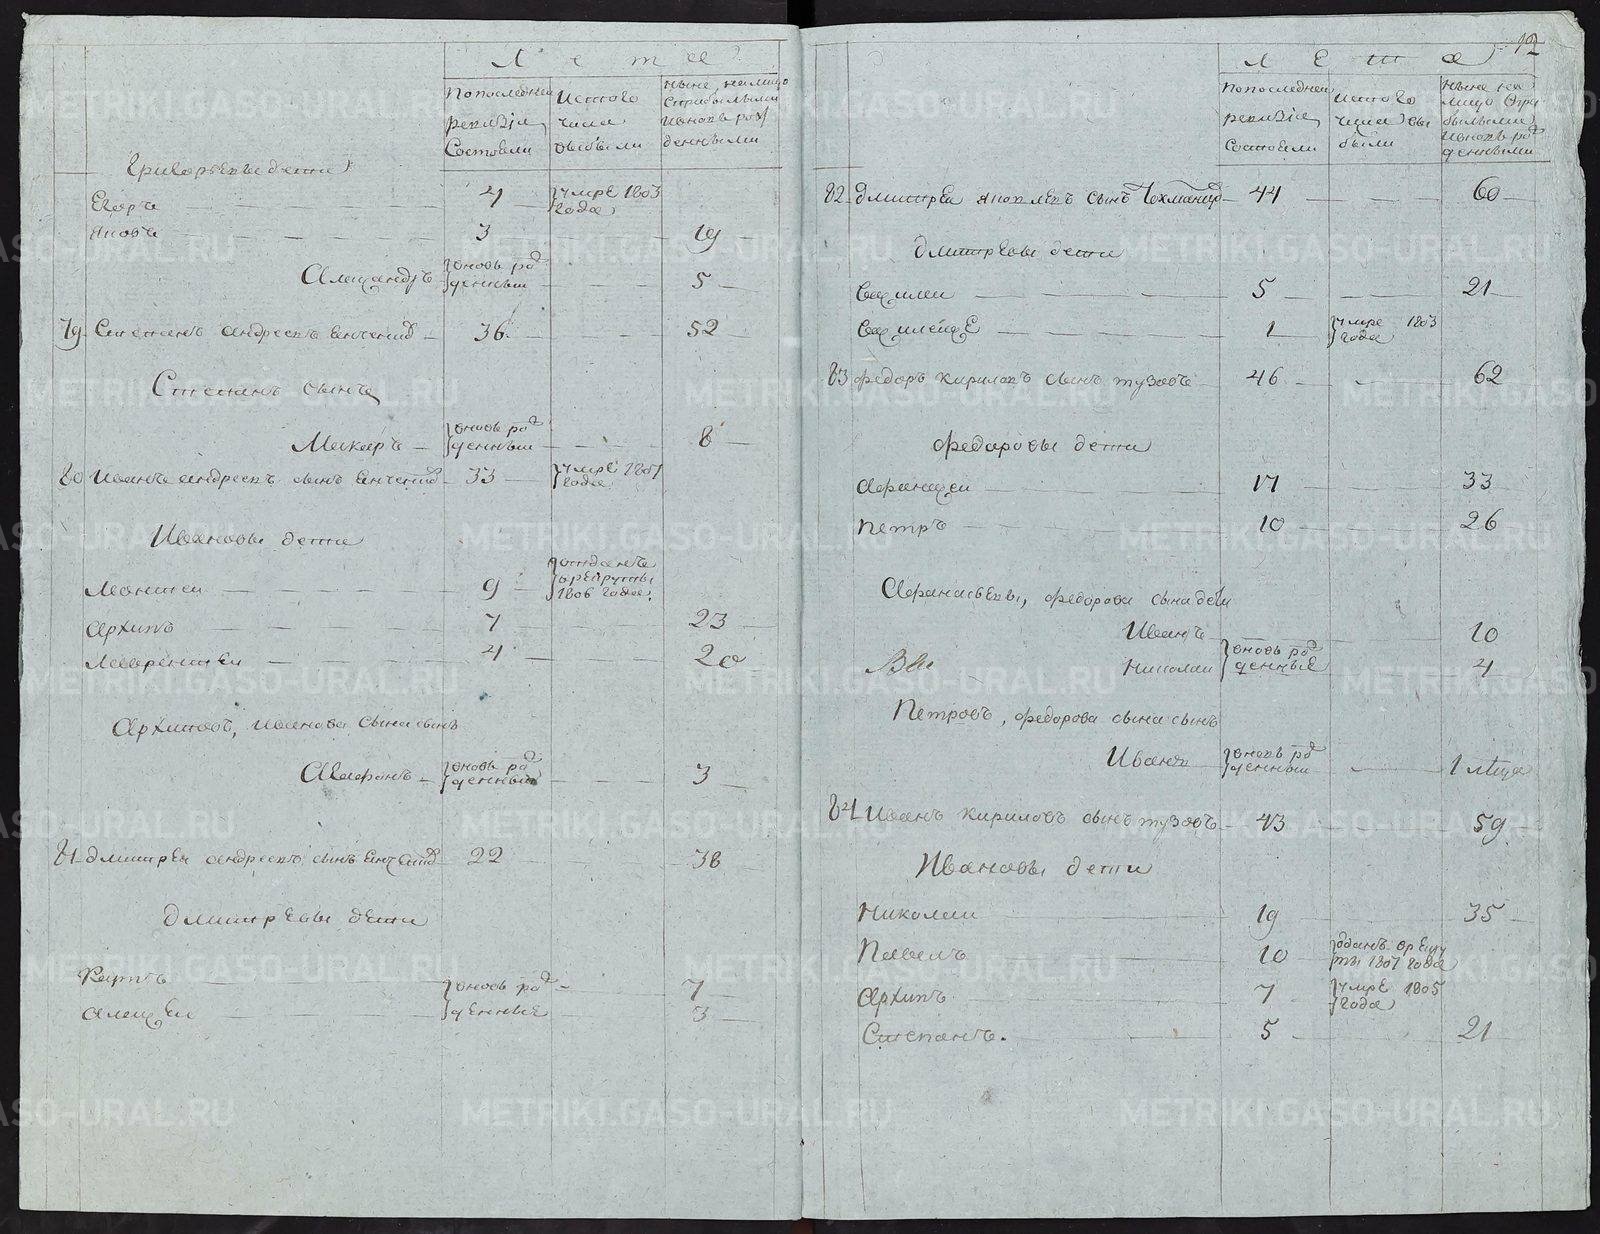 Лета
По последней ревизiи Состояли
Из того числа выбыли
Ныне на лицо Сприбылыми и вновь рожденными
Григорьевы дети
Егоръ 4 умре 1803 года
Яковъ 3 19
Александръ вновь рожденный 5
79 Степанъ андреевъ 36 52
Степанъ сынъ
Макаръ вновь рожденный 8
80 Иванъ андреевъ сынъ 33 умре 1807 года
Ивановы дети
Леонтей 9 отданъ врекруты 1806 года.
Архипъ 7 23
Лаврентей 4 20
Архиповъ, иванова сына сынъ
Агафонъ вновь рожденный 3
81 дмитрей андреевъ сынъ 22 38
дмитрЕвы дЕти
Карпъ вновь рожденные 7
алексей 3
12
Лета
По последней ревизiи Состояли
Из того числа выбыли
Ныне на лицо Сприбылыми и вновь рожденными
82 дмитрей яковлевъ сынъ 44 60
дмитрЕвы дети
Василей 5 21
1 умре 1803 года
83 федоръ кириловъ сынъ тузовъ 46 62
Федоровы дети
афанасей 17 33
Петръ 10 26
Афанасьевы, федорова сына дети
Иванъ вновь рожденные 10
Николай 4
Петровъ, федорова сына сынъ
Иванъ вновь рожденный 1 мца
84 Иванъ кириловъ сынъ тузовъ 43 59
Ивановы дети
Николай 19 35
Павелъ 10 отданъ врекруты 1807 года
Архипъ 7 умре 1805 года
Степанъ. 5 21
METRIKI.GASO-URAL.RU